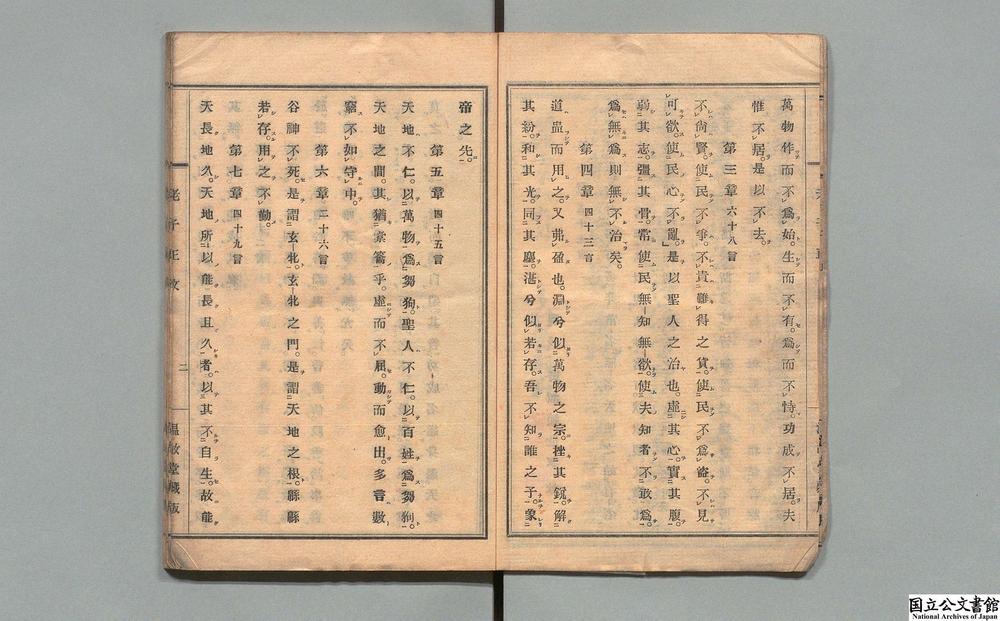 萬物作而不爲始。生而不有。爲而不恃。功成不居。夫
惟不居。是以不去。
第三章 六十八言
不尙賢。使民不爭。不貴難得之貨。使民不爲盜。不見
可欲。使民心不亂。」是以聖人之治也。虛其心。實其腹。
弱其志。彊其骨。常使民無知無欲。使夫知者不敢爲。
爲無爲則無不治矣。
第四章 四十三言
道盅而用之。又弗盈也。淵兮似萬物之宗。挫其銳。解
其紛。和其光。同其塵。湛兮似若存。吾不知誰之子。象
帝之先。
第五章 四十五言
天地不仁。以萬物爲芻狗。聖人不仁。以百姓爲芻狗。
天地之間。其猶橐籥乎。虛而不屈。動而愈出。多言數
窮。不如守中。
第六章 二十六言
谷神不死。是謂玄牝。玄牝之門。是謂天地之根。緜緜
若存。用之不勤。
第七章 四十九言
天長地久。天地所以能長且久者。以其不自生。故能
老子正攷
二
藏版
国立公文書館
National Archives of Japan